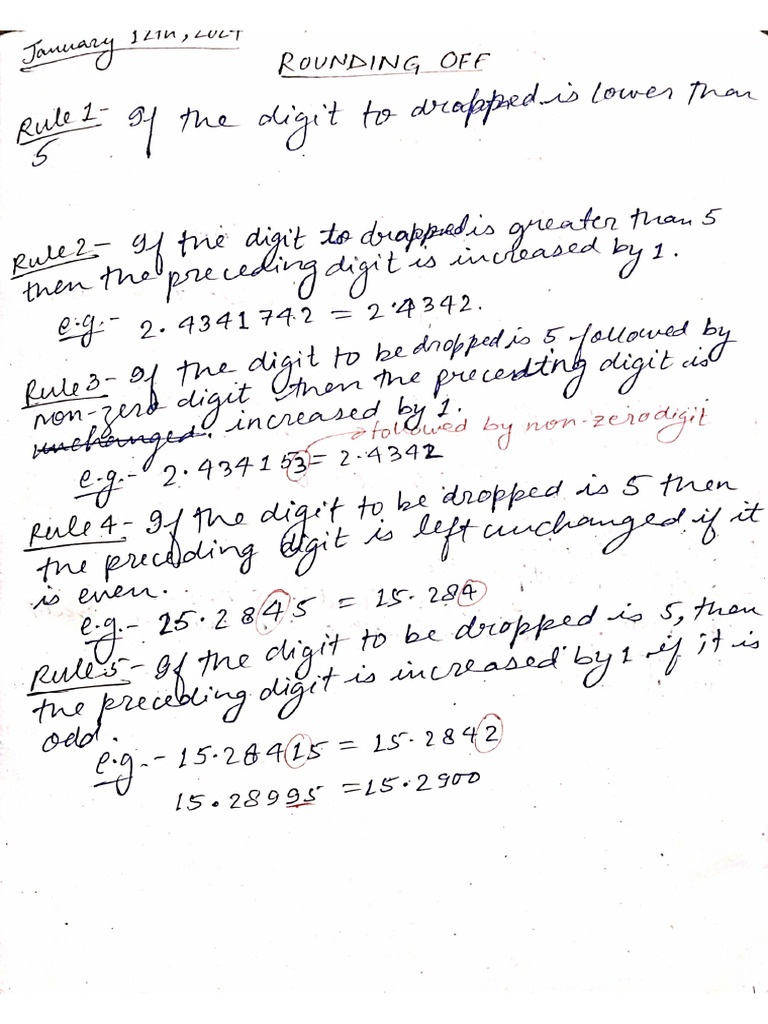 January 12th, 2024
ROUNDING OFF
Rule 1- If the digit to dropped is lower than
5
Rule 2- If the digit to dropped is greater than 5
then the preceding digit is increased by 1.
e.g.- 2.4341742 = 2.4342.
Rule 3- If the digit to be dropped is 5 followed by
non-zero digit then the preceding digit is
unchanged. increased by 1.
→followed by non-zero digit
e.g.- 2.434153 = 2.4342
Rule 4- If the digit to be dropped is 5 then
the preceding digit is left unchanged if it
is even.
e.g.- 25.2845 = 15.284
Rule 5- If the digit to be dropped is 5, then
the preceding digit is increased by 1 if it is
odd.
e.g.- 15.28415 = 15.2842
15.28995 = 15.2900